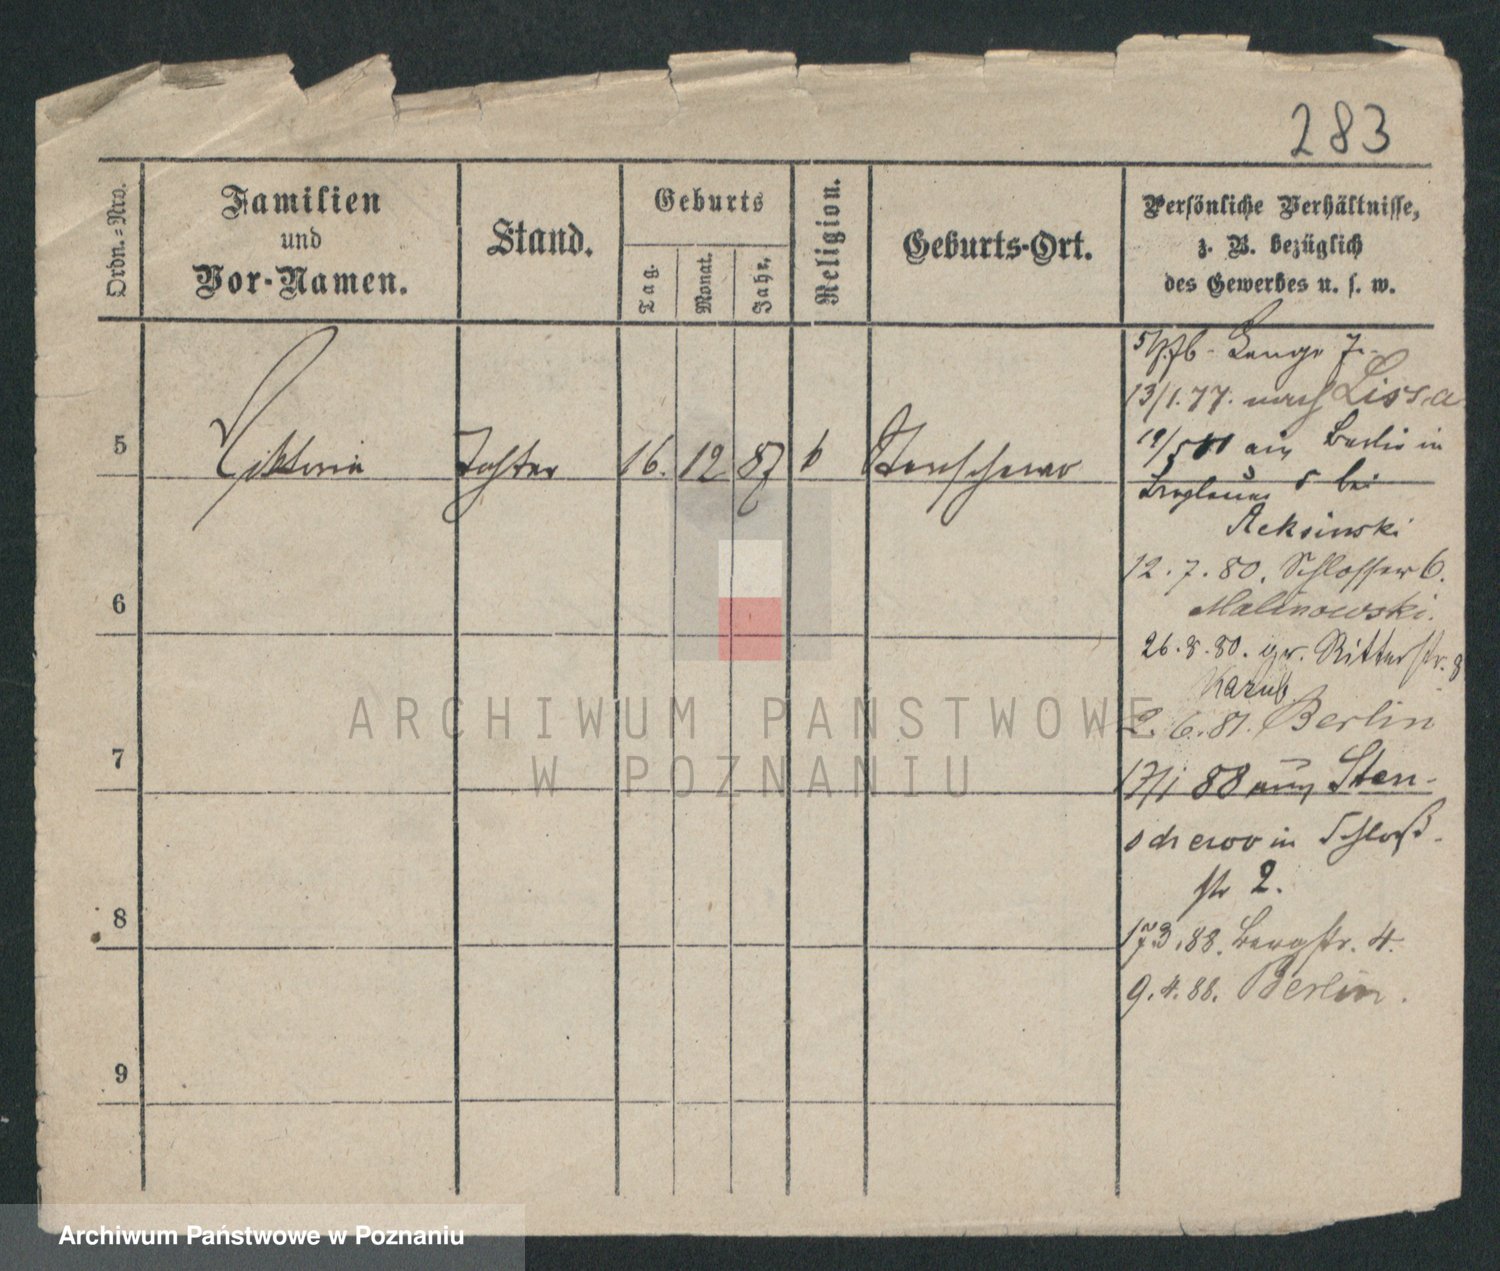 283
Ordn.-Nro.
Familien
und
Vor-Namen.
Stand.
Geburts
Tag.
Monat.
Jahr.
Religion.
Geburts-Ort.
Persönliche Verhältnisse,
z. B. bezüglich
des Gewerbes u. s. w.
5
Viktoria
Tochter
16.
12
87
Stenschewo
Lange
13/1.77. nach Lissa
Berlin in
bei
12.7.80. Schlosser 6.
Malinowski.
26.8.80. gr. Ritterstr. 8
2.6.81. Berlin
17/1 88 aus Sten-
schewo in Schloß-
str 2.
17.3.88. Bergstr. 4.
9.4.88. Berlin.
6
7
8
9
ARCHIWUM PAŃSTWOWE
W POZNANIU
Archiwum Państwowe w Poznaniu